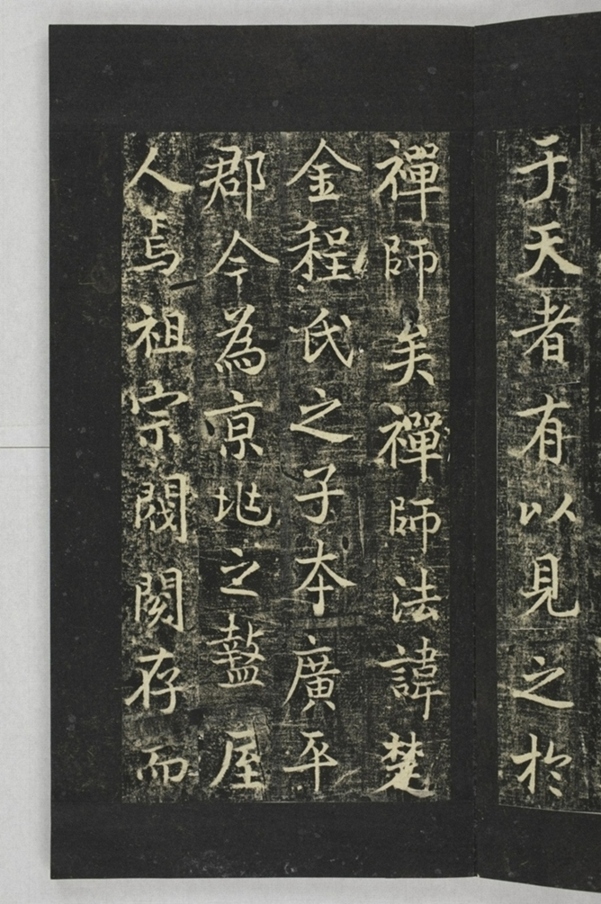 于天者有以見之於
禪師矣禪師法諱楚
金程氏之子夲廣平
郡今為亰地之盩屋
人焉祖宗閥閱存而